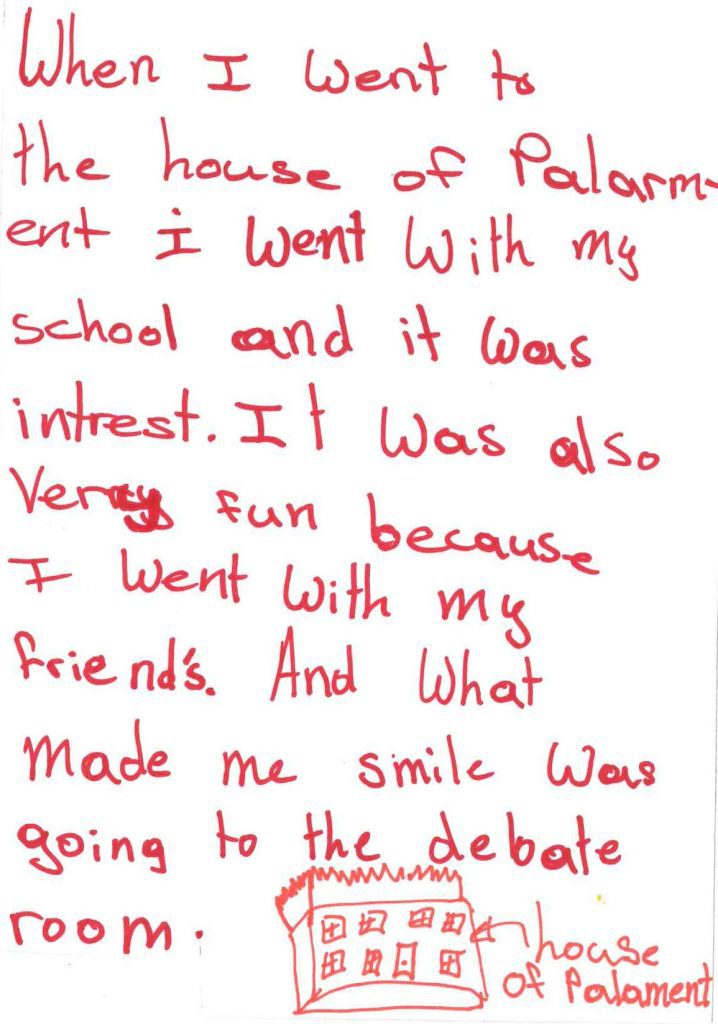 When I went to
the house of Palarm-
ent i went with my
school and it was
intrest. It was also
Very fun because
I went with my
friend's. And what
made me smile was
going to the debate
room.
house
of Palament